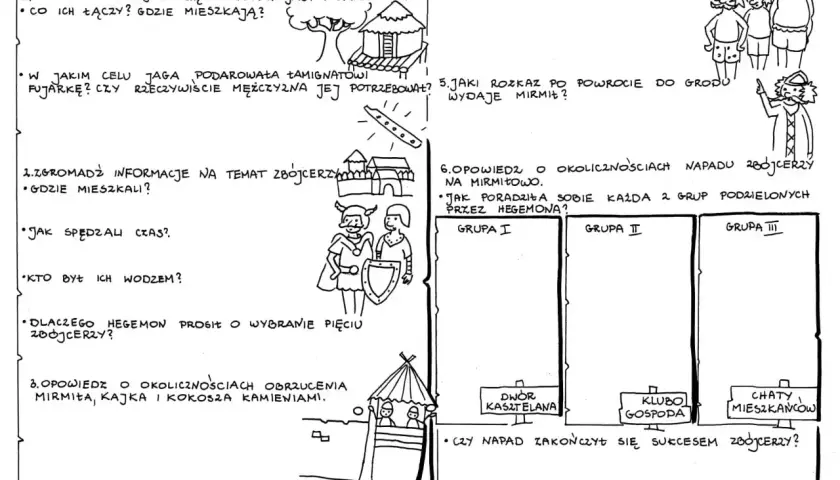 • CO ICH ŁĄCZY? GDZIE MIESZKAJĄ?
• W JAKIM CELU JAGA PODAROWAŁA ŁAMIGNATOWI
FUJARKĘ? CZY RZECZYWIŚCIE MĘŻCZYZNA JEJ POTRZEBOWAŁ?
2. ZGROMADŹ INFORMACJE NA TEMAT ZBÓJCERZY
• GDZIE MIESZKALI?
• JAK SPĘDZALI CZAS?
• KTO BYŁ ICH WODZEM?
• DLACZEGO HEGEMON PROSIŁ O WYBRANIE PIĘCIU
ZBÓJCERZY?
3. OPOWIEDZ O OKOLICZNOŚCIACH OBRZUCENIA
MIRMIŁA, KAJKA I KOKOSZA KAMIENIAMI.
5. JAKI ROZKAZ PO POWROCIE DO GRODU
WYDAJE MIRMIŁ?
6. OPOWIEDZ O OKOLICZNOŚCIACH NAPADU ZBÓJCERZY
NA MIRMIŁOWO.
• JAK PORADZIŁA SOBIE KAŻDA Z GRUP PODZIELONYCH
PRZEZ HEGEMONA?
GRUPA I
GRUPA II
GRUPA III
DWÓR
KASZTELANA
KLUBO
GOSPODA
CHATY
MIESZKAŃCÓW
• CZY NAPAD ZAKOŃCZYŁ SIĘ SUKCESEM ZBÓJCERZY?